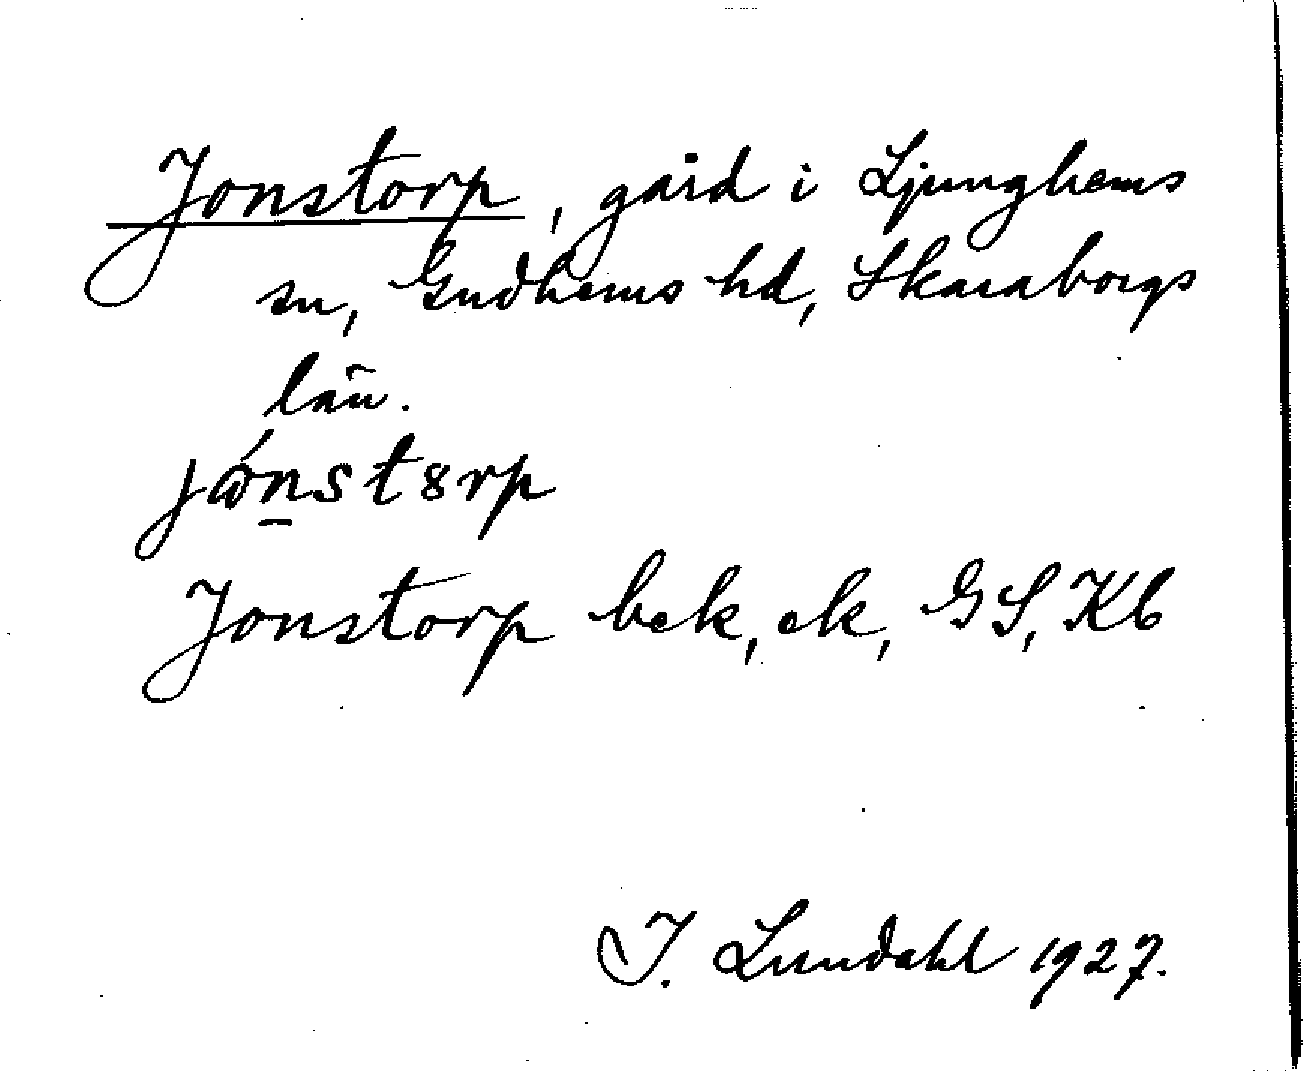 Jonstorp, gård i Ljunghems
sn, Gudhems hd, Skaraborgs
län.
jón̲st8rp
Jonstorp bek, ek, GS, Kb
I. Lundahl 1927.